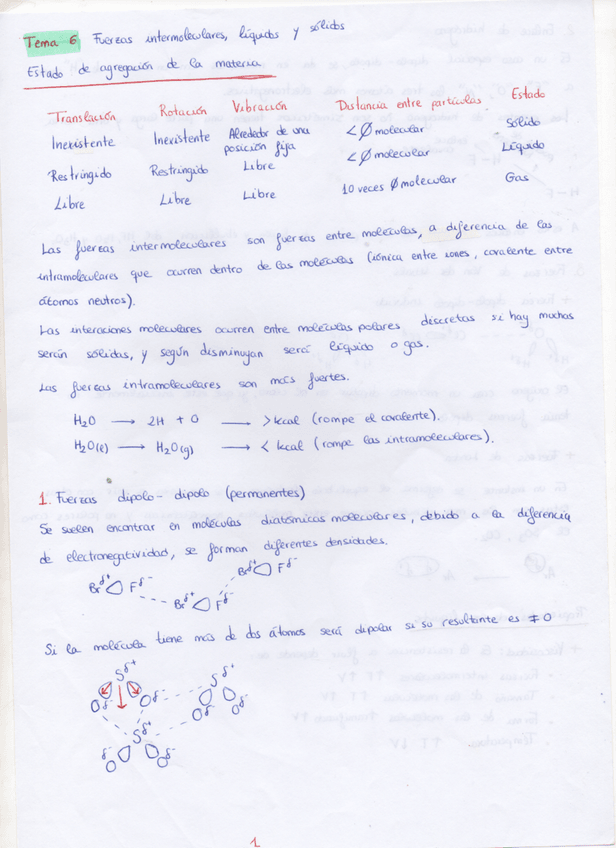 Tema 6 Fuerzas intermoleculares, líquidos y sólidos
Estado de agregación de la materia
Translación Rotación Vibración Distancia entre partículas. Estado
Inexistente Inexistente Alrededor de una posición fija <Ø molecular Sólido
Restringido Restringido Libre <Ø molecular Líquido
Libre Libre Libre 10 veces Ø molecular Gas
Las fuerzas intermoleculares son fuerzas entre moléculas, a diferencia de las
intramoleculares que ocurren dentro de las moléculas (iónica entre iones, covalente entre
átomos neutros).
Las interaciones moleculares ocurren entre moléculas polares discretas si hay muchas
serán sólidas, y según disminuyan será líquido o gas.
Las fuerzas intramoleculares son más fuertes.
H2O → 2H + O → >kcal (rompe el covalente).
H2O(l) → H2O(g) → < kcal (rompe las intramoleculares).
1. Fuerzas dipolo-dipolo (permanentes)
Se suelen encontrar en moléculas diatómicas moleculares, debido a la diferencia
de electronegatividad, se forman diferentes densidades.
Br δ+ F δ-
Br δ+ F δ-
Br δ+ F δ-
Si la molécula tiene más de dos átomos será dipolar si su resultante es ≠ 0
S δ+ S δ+
O δ- O δ- O δ- O δ-
S δ+
O δ- O δ-
1